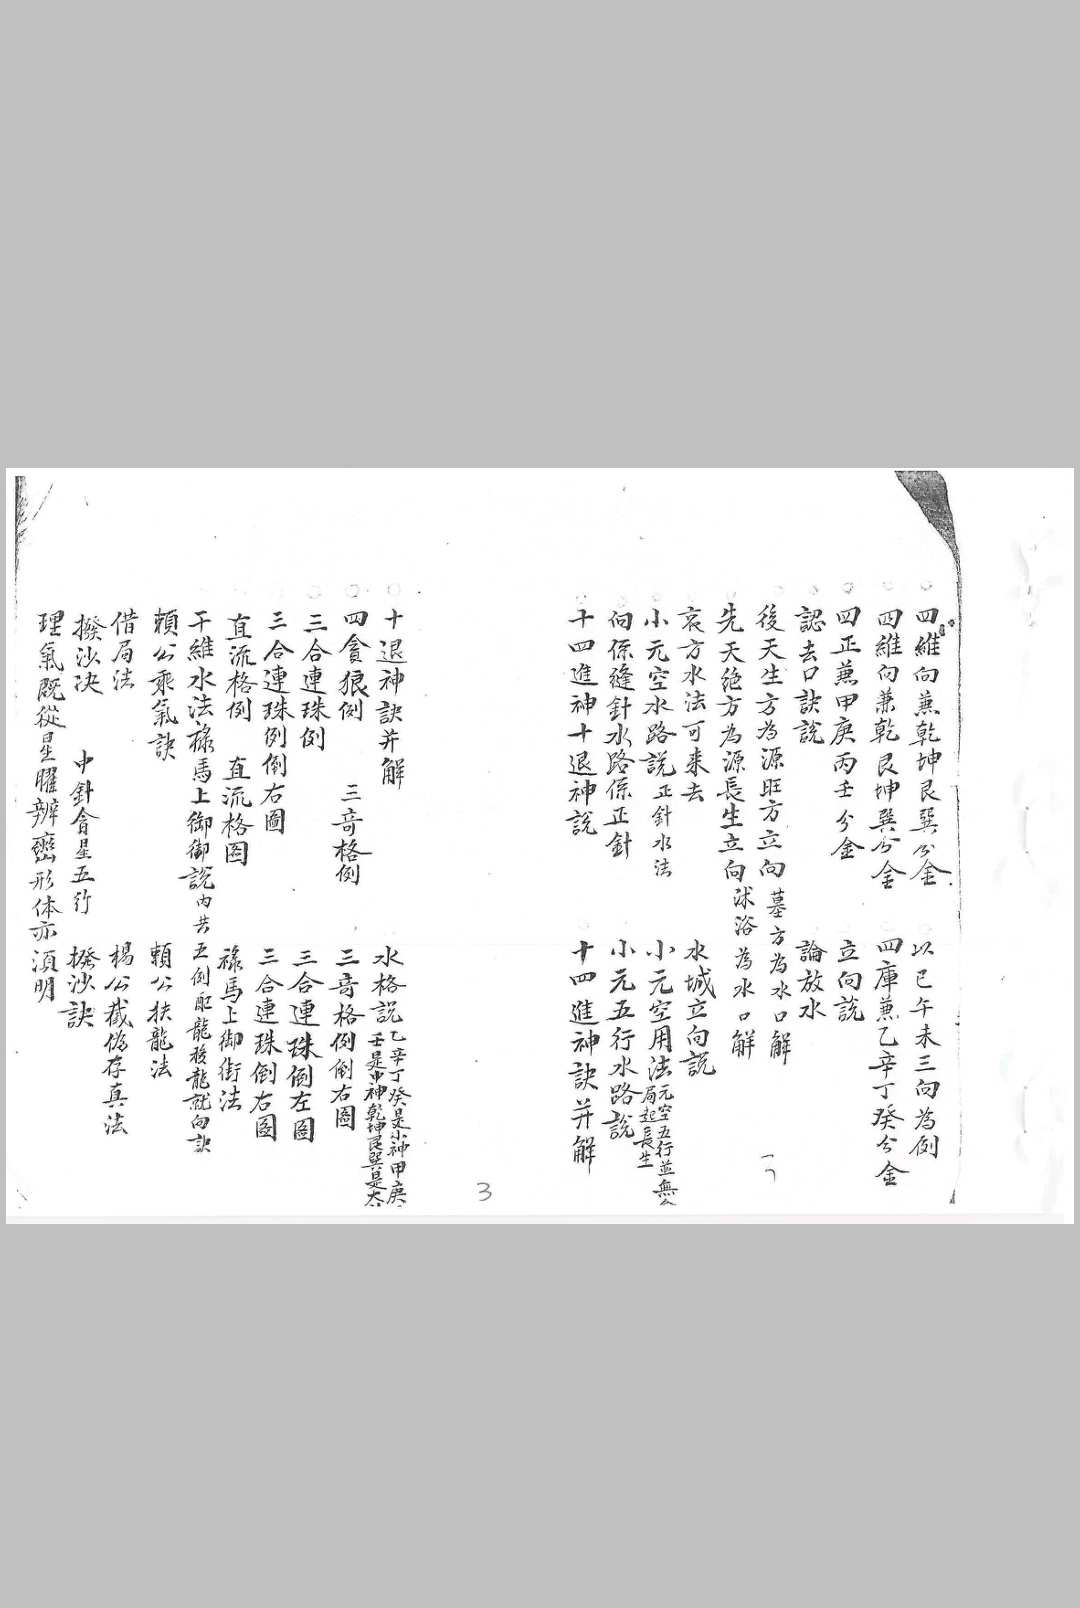 四維向兼乾坤艮巽分金　以巳午未三向為例
四維向兼乾艮坤巽分金　四庫兼乙辛丁癸分金
四正兼甲庚丙壬分金　立向說
認去口訣說　論放水
後天生方為源旺方立向　墓方為水口解
先天絕方為源長生立向　沭浴為水口解
哀方水法可来去　水城立向說
小元空水路説　正針水法　小元空用法　元空五行並無　局起長生
向係縫針水路係正針　小元五行水路說
十四進神十退神說　十四進神訣并解
3
十退神訣并解　水格説　乙辛丁癸是小神甲庚　壬是中神乾坤艮巽是大
四貪狼例　三竒格例　三竒格例倒右圖
三合連珠例　三合連珠倒左圖
三合連珠例倒右圖　三合連珠倒右圖
直流格例　直流格图　祿馬上御街法
干維水法祿馬上御御說　内共五例配龍發龍就向訣
賴公乘氣訣　賴公扶龍法
借局法　楊公截偽存真法
撥沙决　中針會星五行　撥沙訣
理氣既從星曜辨巒形体亦湏明